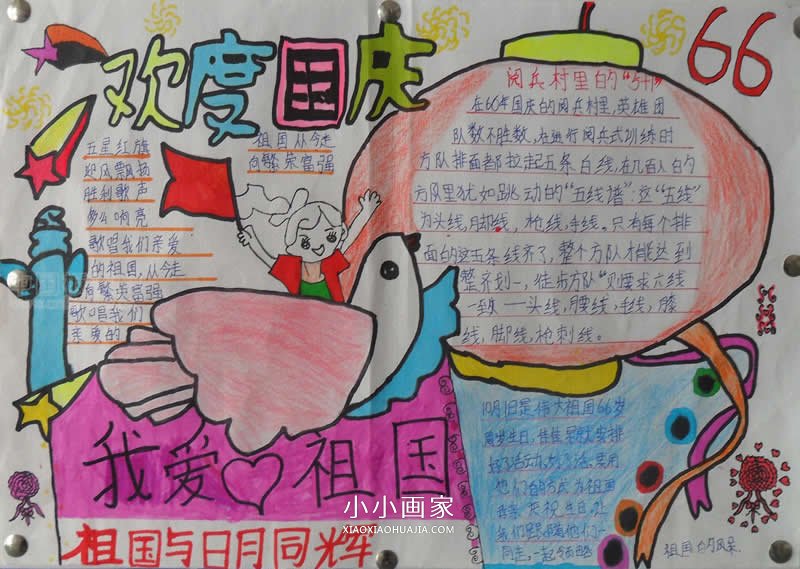 欢度国庆
66
五星红旗
迎风飘扬
胜利歌声
多么响亮
歌唱我们亲爱
的祖国,从今走
向繁荣富强
歌唱我们
亲爱的
祖国从今走
向繁荣富强
阅兵村里的"5线"
在60年国庆的阅兵村里,英雄团
队数不胜数,在进行阅兵式训练时
方队排面都拉起五条白线,在几百人的
方队里犹如跳动的"五线谱"这"五线"
为头线,脚线,枪线,手线。只有每个排
面的这五条线齐了,整个方队才能达到
整齐划一,徒步方队"则要求六线
一致——头线,腰线,手线,膝
线,脚线,枪刺线。
10月1日是伟大祖国66岁
我爱祖国
祖国与日月同辉
祖国的风采
小小画家
XIAOXIAOHUAJIA.COM